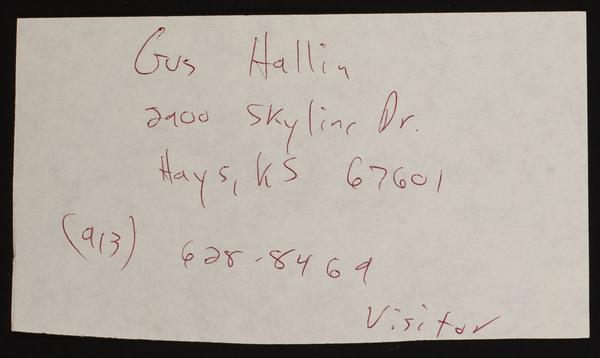 Gus Hallin
2900 Skyline Dr.
Hays, KS 67601
(913) 628-8469
Visitor